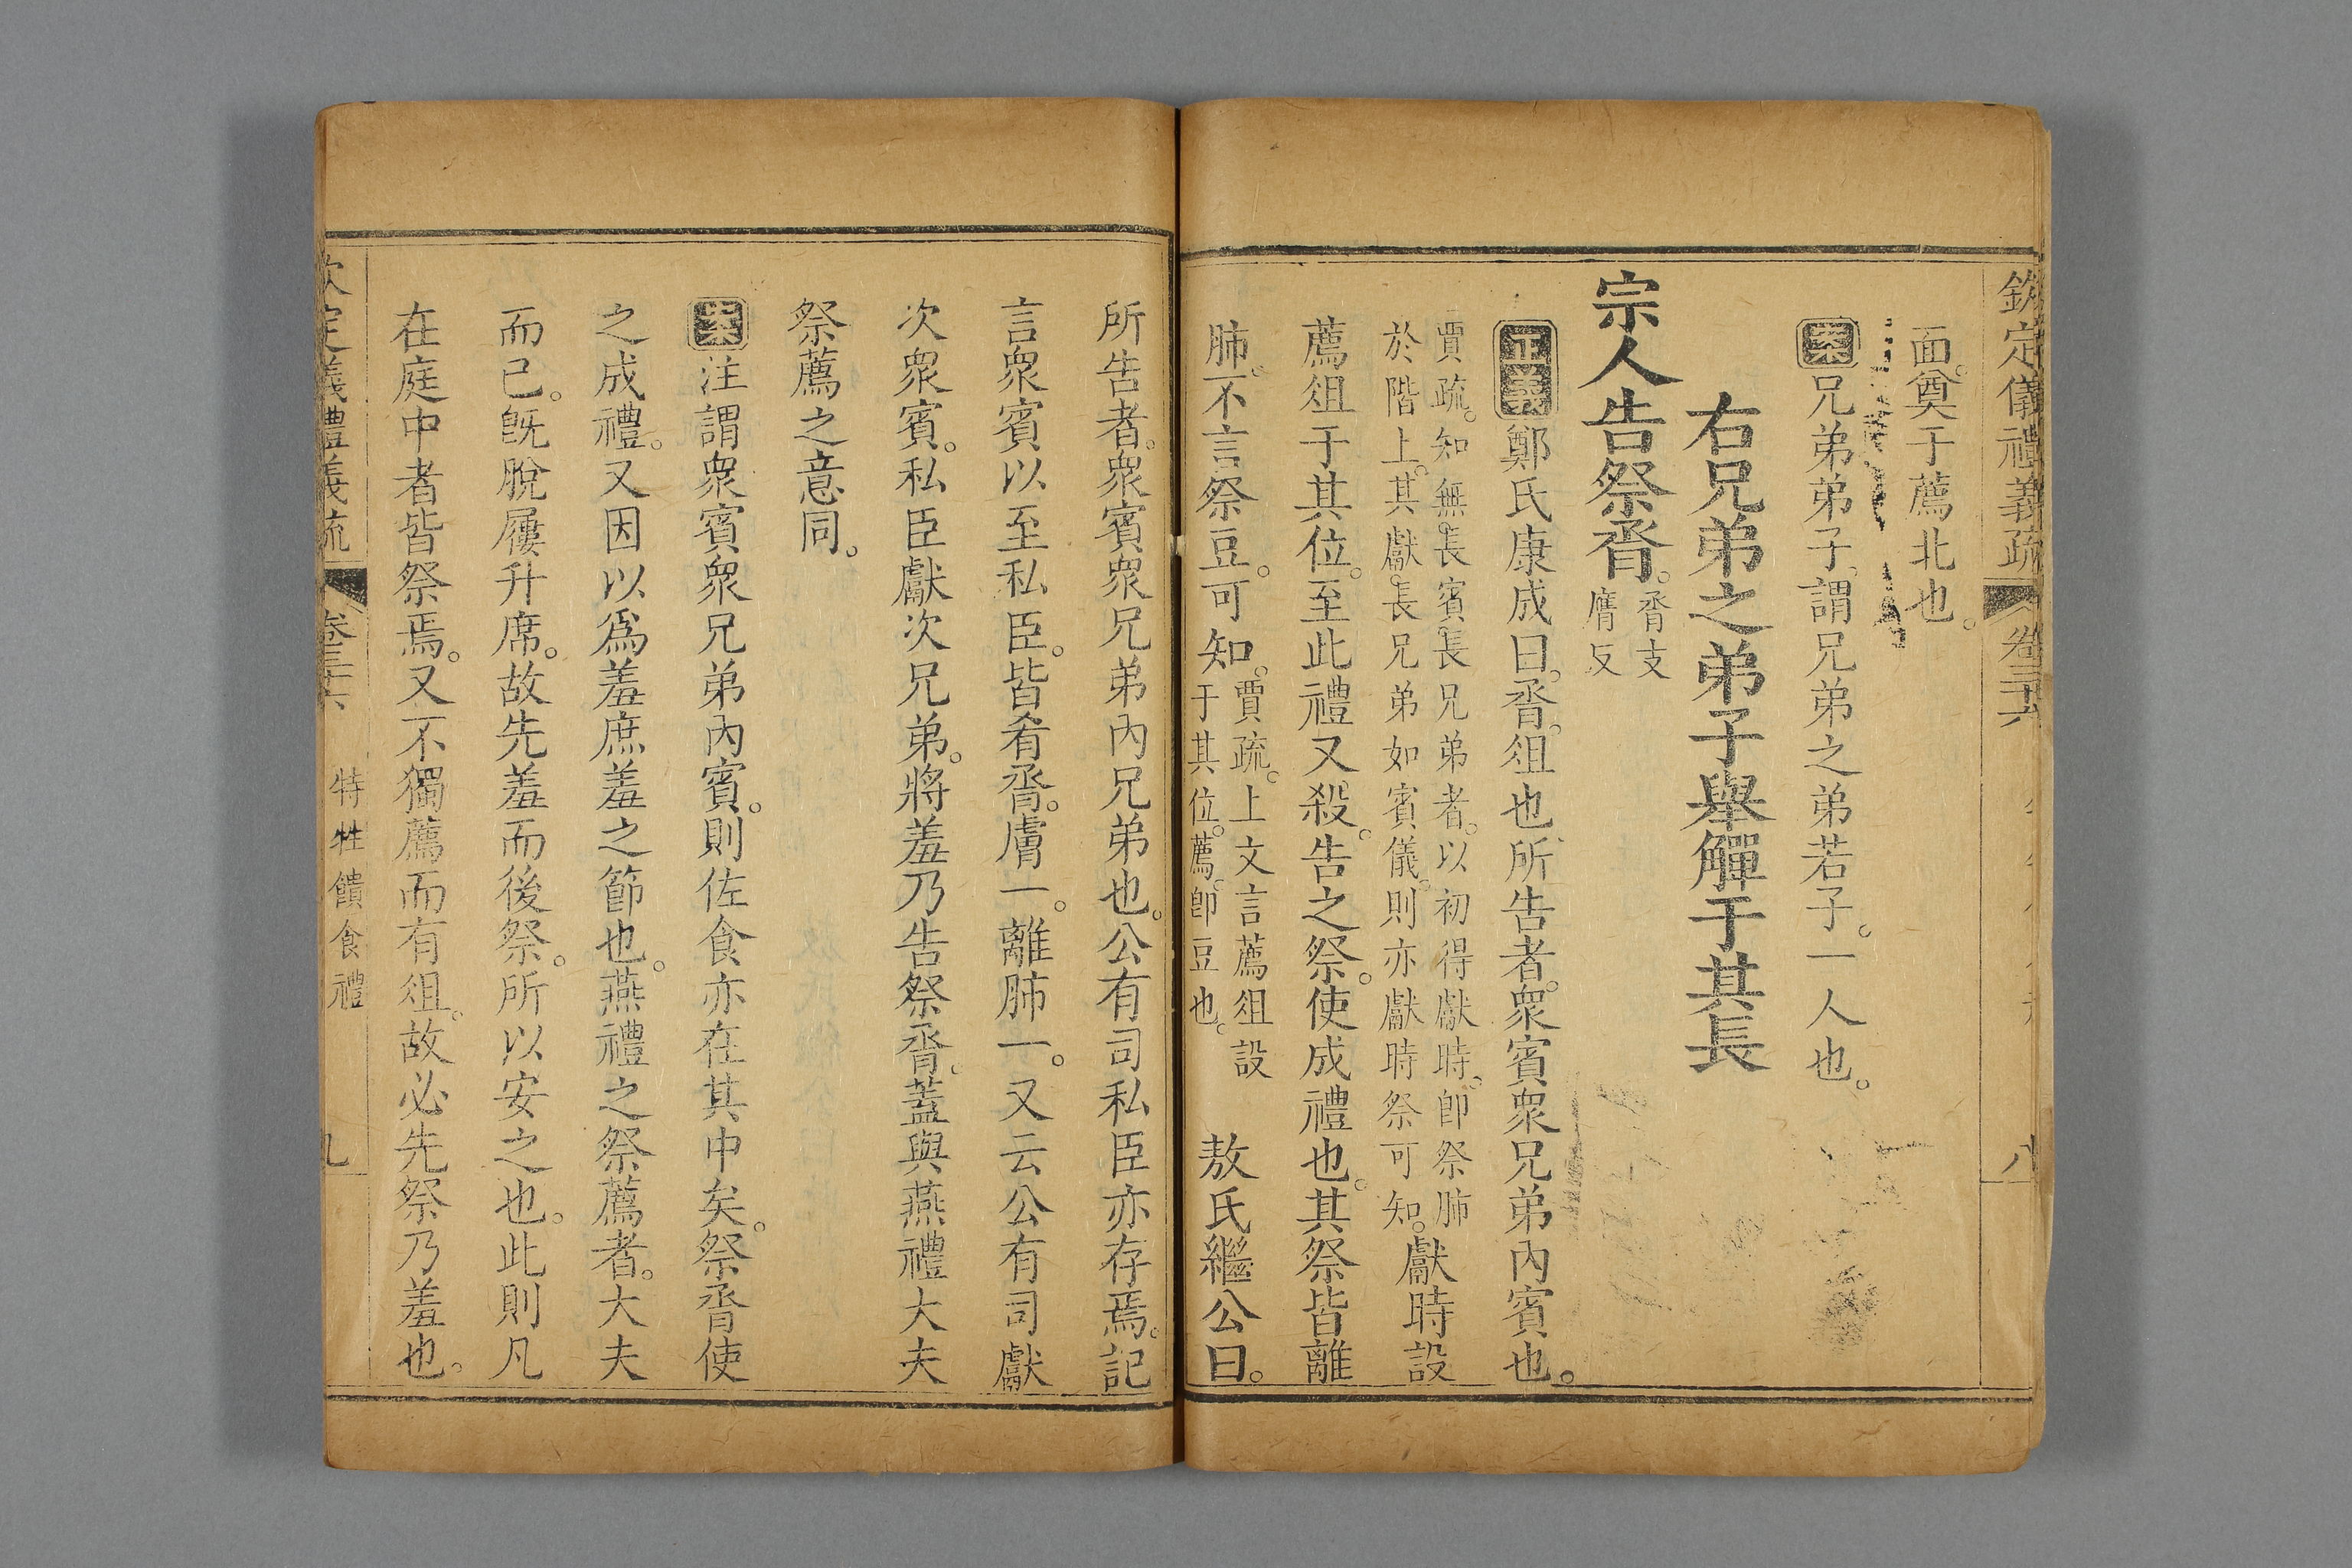 欽定儀禮義疏 卷三十六 八
面。奠于薦北也。
案兄弟弟子。謂兄弟之弟若子。一人也。
右兄弟之弟子舉觶于其長
宗人告祭脀。脀支膺反
正義鄭氏康成曰。脀。俎也。所告者。衆賓衆兄弟內賓也。
賈疏。知無長賓。長兄弟者。以初得獻時。卽祭肺
於階上。其獻。長兄弟如賓儀。則亦獻時祭可知。
獻時設
薦俎于其位。至此禮又殺。告之祭。使成禮也。其祭皆離
肺。不言祭豆。可知。
賈疏。上文言薦俎設
于其位。薦。卽豆也。
敖氏繼公曰。
所告者。衆賓衆兄弟內兄弟也。公有司私臣亦存焉。記
言衆賓以至私臣。皆肴脀。膚一。離肺一。又云公有司獻
次衆賓。私臣獻次兄弟。將羞乃告祭脀。蓋與燕禮大夫
祭薦之意同。
案注謂衆賓衆兄弟內賓。則佐食亦在其中矣。祭脀使
之成禮。又因以爲羞庶羞之節也。燕禮之祭薦者。大夫
而已。旣脫屨升席。故先羞而後祭。所以安之也。此則凡
在庭中者皆祭焉。又不獨薦而有俎。故必先祭乃羞也。
欽定儀禮義疏 卷三十六 特牲饋食禮 九